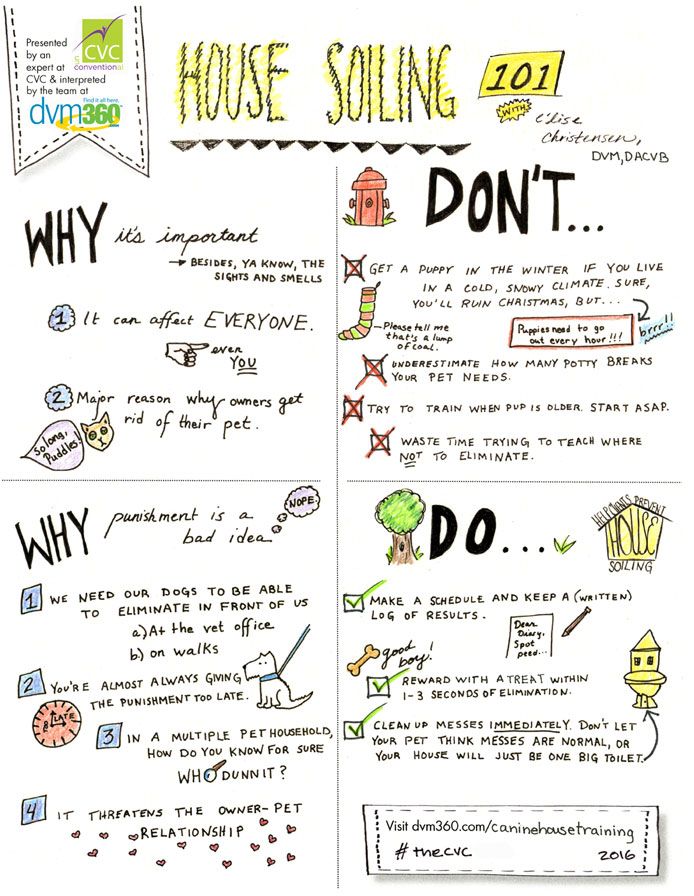 Presented
by an
expert at
CVC & interpreted
by the team at
CVC
conventional
Find it all here.
dvm360
HOUSE SOILING 101
WITH
Elise
Christensen,
DVM, DACVB
WHY it's important
→ BESIDES, YA KNOW, THE
SIGHTS AND SMELLS
1 It can affect EVERYONE.
even
YOU
2 Major reason why owners get
rid of their pet.
So long,
Puddles!
DON'T...
GET A PUPPY IN THE WINTER IF YOU LIVE
IN A COLD, SNOWY CLIMATE. SURE,
YOU'LL RUIN CHRISTMAS, BUT...
Please tell me
that's a lump
of coal.
Puppies need to go
out every hour!!!
brrr!!
UNDERESTIMATE HOW MANY POTTY BREAKS
YOUR PET NEEDS.
TRY TO TRAIN WHEN PUP IS OLDER. START ASAP.
WASTE TIME TRYING TO TEACH WHERE
NOT TO ELIMINATE.
WHY punishment is a
bad idea
NOPE.
1 WE NEED OUR DOGS TO BE ABLE
TO ELIMINATE IN FRONT OF US
a) At the vet office
b) on walks
2 YOU'RE ALMOST ALWAYS GIVING
THE PUNISHMENT TOO LATE.
LATE
3 IN A MULTIPLE PET HOUSEHOLD,
HOW DO YOU KNOW FOR SURE
WHODUNNIT?
4 IT THREATENS THE OWNER-PET
RELATIONSHIP
DO...
HELP CLIENTS PREVENT
HOUSE
SOILING
MAKE A SCHEDULE AND KEEP A (WRITTEN)
LOG OF RESULTS.
Dear
Diary,
Spot
peed...
good
boy!
REWARD WITH A TREAT WITHIN
1-3 SECONDS OF ELIMINATION.
CLEAN UP MESSES IMMEDIATELY. DON'T LET
YOUR PET THINK MESSES ARE NORMAL, OR
YOUR HOUSE WILL JUST BE ONE BIG TOILET.
Visit dvm360.com/caninehousetraining
#thecvc 2016